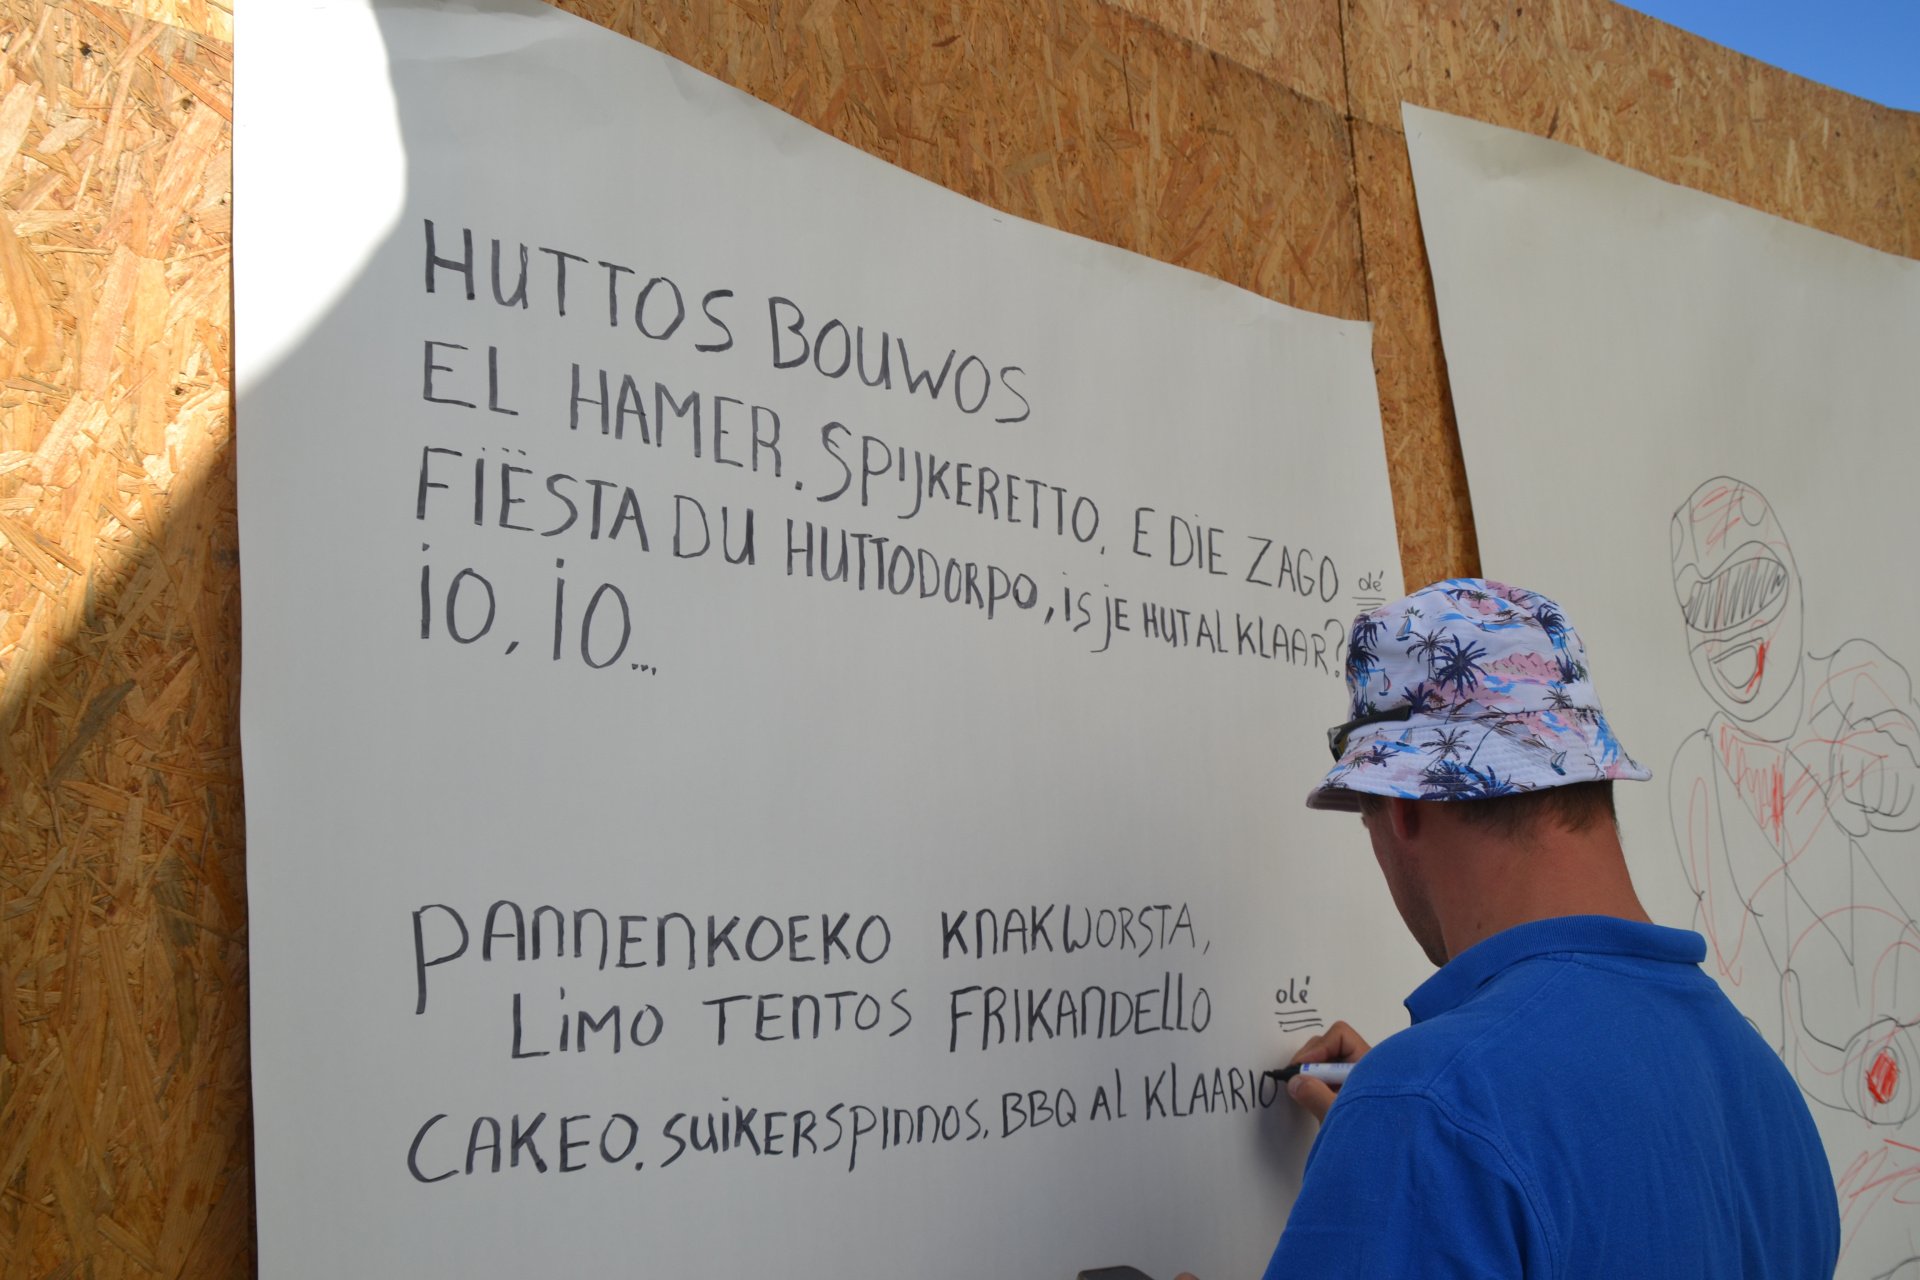 HUTTOS BOUWOS
EL HAMER. SPIJKERETTO, E DIE ZAGO olé
FIËSTA DU HUTTODORPO, is JE HUT AL KLAAR?
iO, iO...
PANNENKOEKO KNAKWORSTA,
LiMO TENTOS FRIKANDELLO olé
CAKEO. SUiKERSPINNOS, BBQ Al KLAARIO